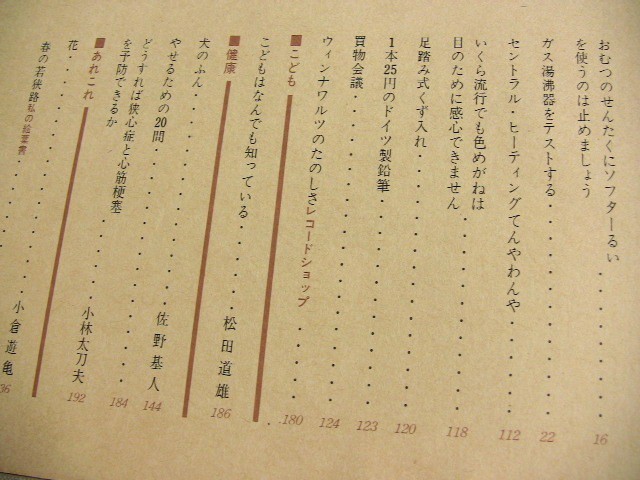 おむつのせんたくにソフターるい
を使うのは止めましょう・・・・・・・・・16
ガス湯沸器をテストする・・・・・・・・・22
セントラル・ヒーティングてんやわんや・・・・・・112
いくら流行でも色めがねは
目のために感心できません・・・・・・・・・118
足踏み式くず入れ・・・・・・・・・・・・120
1本25円のドイツ製鉛筆・・・・・・・・・123
買物会議・・・・・・・・・・・・・・124
ウィンナワルツのたのしさ レコードショップ・・・・・180
■こども
こどもはなんでも知っている・・・・・松田道雄 186
■健康
犬のふん・・・・・・・・・・・佐野基人 144
やせるための20問・・・・・・・・・・・184
どうすれば狭心症と心筋梗塞
を予防できるか・・・・・・・・小林太刀夫 192
■あれこれ
花・・・・・・・・・・・・小倉遊亀
春の若狭路 私の絵葉書・・・・・